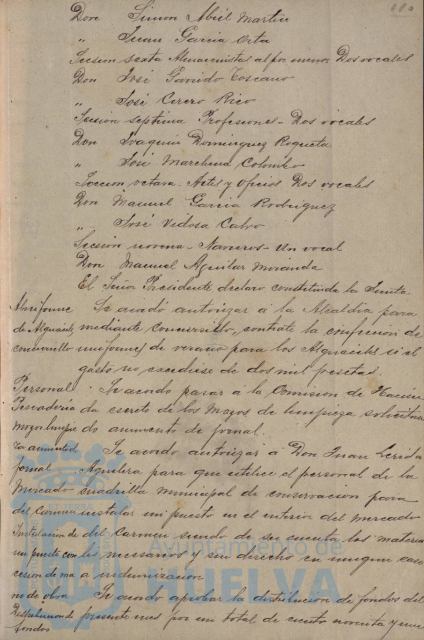 Don Simon Abril Martin
" Juan Garcia Orta
Sección sexta Almacenistas al por menor Dos vocales
Don José Garrido Toscano
" José Cerero Rico
Sección septima Profesiones - Dos vocales
Don Joaquin Dominguez Roqueta
" José Marchena Colombo
Seccion octava - Artes y Oficios Dos vocales
Don Manuel Garcia Rodriguez
" José Vidosa Calvo
Sección novena - Navieros - Un vocal
Don Manuel Aguilar Miranda
El Señor Presidente declaro constituida la Junta
Uniforme Se acordó autorizar á la Alcaldia para
de Alguaciles mediante concursillo, contrate la confeccion de
concursillo uniformes de verano para los Alguaciles si el
gasto no excediese de dos mil pesetas.
Personal Se acordo pasar á la Comision de Hacien
Pescaderia da escrito de los Mozos de limpieza solicitan
Mozos limpieza do aumento de jornal.
aumento Se acordo autorizar á Don Juan
jornal para que utilice el personal de la
Mercado cuadrilla municipal de conservacion para
del Carmen instalar un puesto en el interior del Mercado
Instalacion de del Carmen siendo de su cuenta los materia
un puesto con les necesarios y sin derecho en ningun caso
cesion de ma a indemnizacion
no de obra Se acordo aprobar la distribucion de fondos del
Distribucion de presente mes por un total de ciento noventa y
fondos
Ayuntamiento de
HUELVA